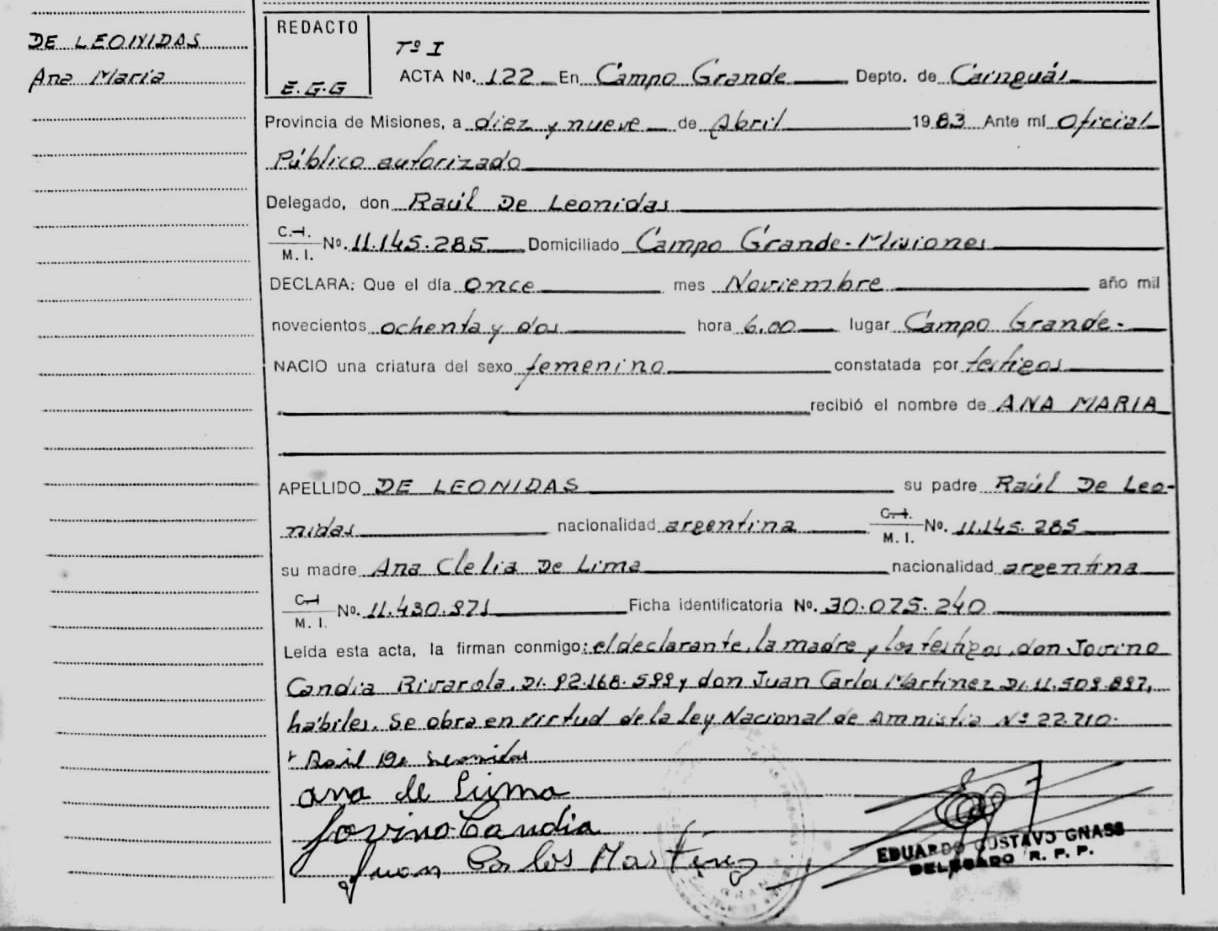 DE LEONIDAS
Ana Maria
REDACTO
E.G.G
Tº I
ACTA Nº. 122 En Campo Grande Depto. de Cainguás
Provincia de Misiones, a diez y nueve de Abril 1983 Ante mí Oficial
Público autorizado
Delegado, don Raúl De Leonidas
C.I. M. I. Nº. 11.145.285 Domiciliado Campo Grande-Misiones
DECLARA: Que el día Once mes Noviembre año mil
novecientos ochenta y dos hora 6,00 lugar Campo Grande.-
NACIO una criatura del sexo femenino constatada por testigos
recibió el nombre de ANA MARIA
APELLIDO DE LEONIDAS su padre Raúl De Leo-
nidas nacionalidad argentina C.I. M. I. Nº. 11.145.285
su madre Ana Clelia De Lima nacionalidad argentina
C.I M. I. Nº. 11.430.971 Ficha identificatoria Nº. 30.075.240
Leída esta acta, la firman conmigo: el declarante, la madre y los testigos, don Jovino
Candia Rivarola, DI. 92.168.599 y don Juan Carlos Martinez DI. 11.509.897,
hábiles. Se obra en virtud de la Ley Nacional de Amnistia Nº 22.710.
Raúl De Leonidas
ana de Lima
Jovino Candia
Juan Carlos Martinez
EDUARDO GUSTAVO GNASS
DELEGADO R. P. P.